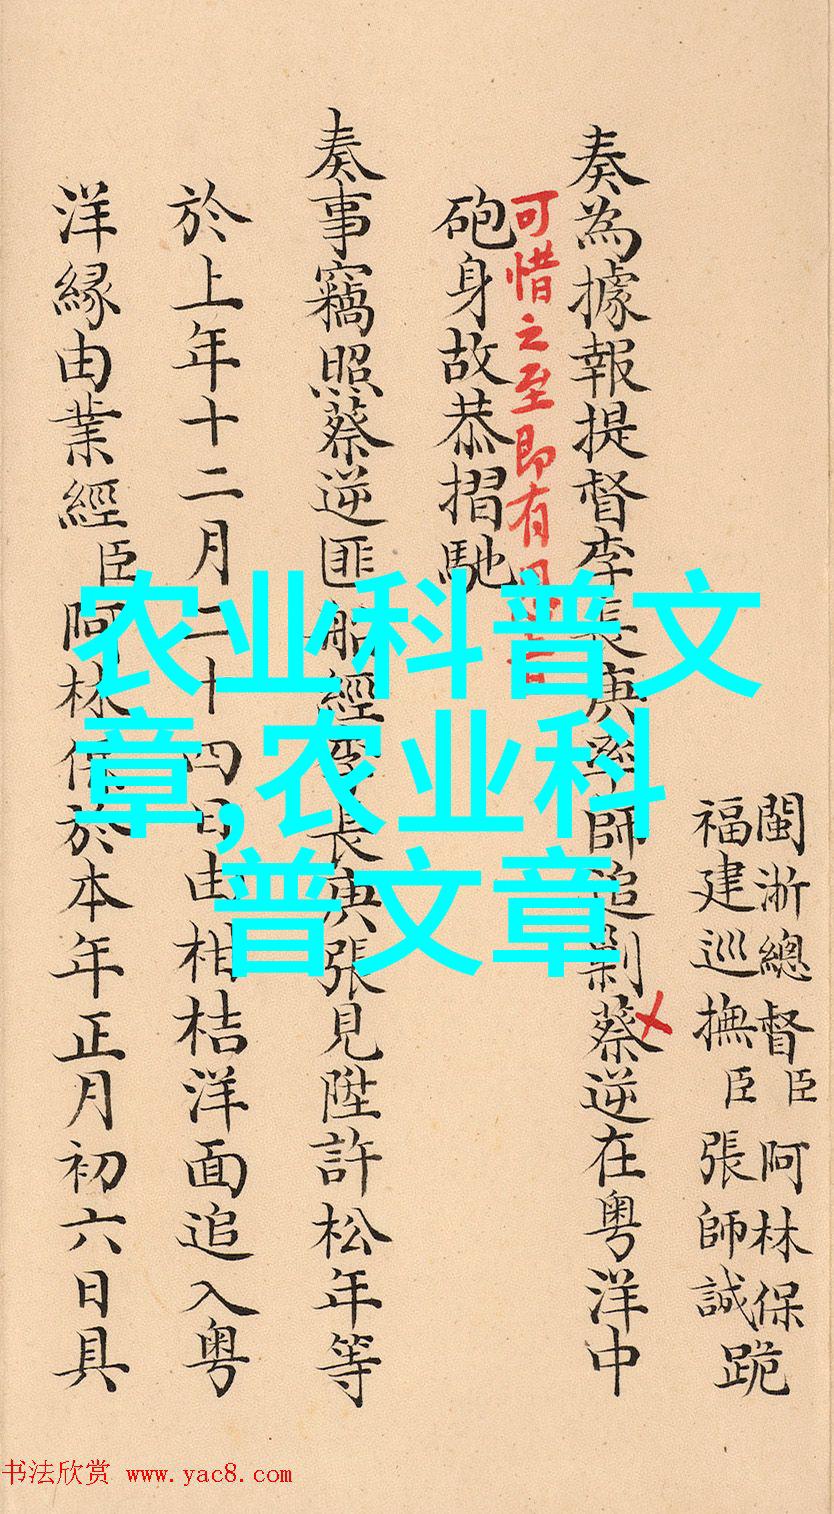 閩浙總督臣阿林保跪
福建巡撫臣張師誠
奏為據報提督李長庚率師追剿蔡逆在粤洋中
可惜之至即有旨
砲身故恭摺馳
奏事竊照蔡逆匪船經李長庚張見陞許松年等
於上年十二月二十四日由柑桔洋面追入粤
洋緣由業經臣阿林保於本年正月初六日具
农业科普文
章,农业科
普文章
书法欣赏 www.yac8.com